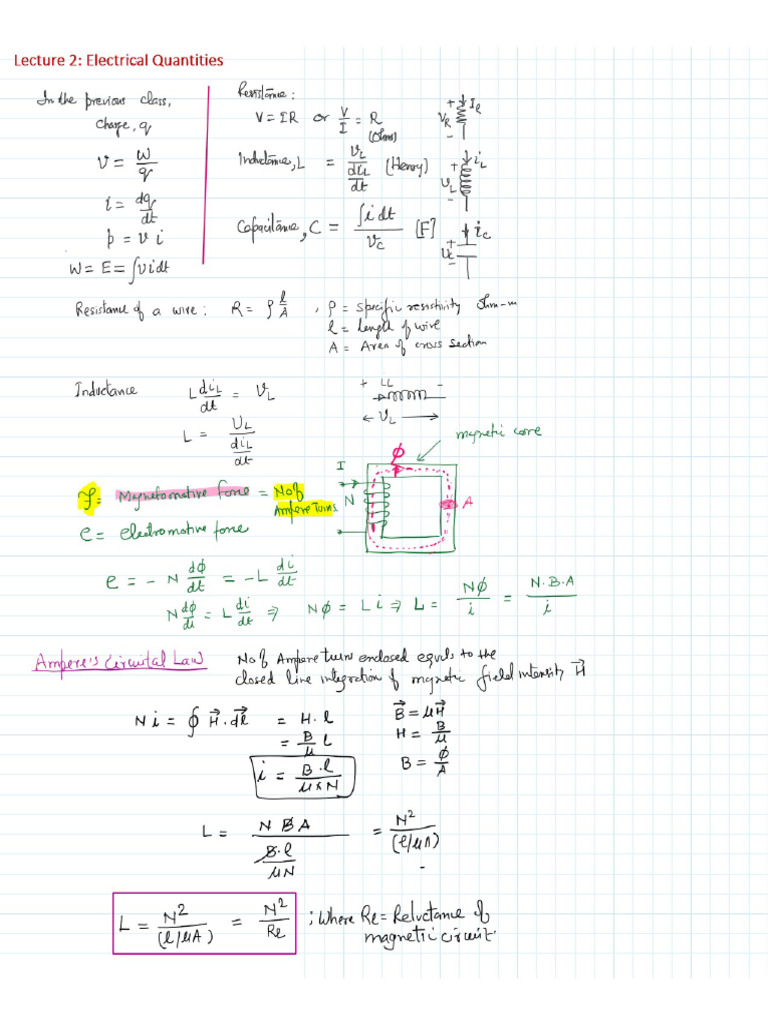 Lecture 2: Electrical Quantities
In the previous class,
Charge, q
v = W/q
i = dq/dt
p = v i
W = E = ∫vidt
Resistance:
V = IR or V/I = R
(Ohms)
Inductance, L = v_L / (di_L/dt) (Henry)
Capacitance, C = ∫i dt / v_c [F]
+ I_R
V_R
-
+ i_L
v_L
-
i_c
+
v_c
-
Resistance of a wire: R = ρ l/A , ρ = specific resistivity Ohm-m
l = length of wire
A = Area of cross section
Inductance L di_L/dt = v_L
L = v_L / (di_L/dt)
+ iL -
← v_L →
magnetic core
φ
I
N
A
ℱ = Magnetomotive force = No of
Ampere Turns
e = electromotive force
e = - N dφ/dt = -L di/dt
N dφ/di = L di/dt ⇒ Nφ = Li ⇒ L = Nφ/i = N.B.A/i
Ampere's Circuital Law No of Ampere turn enclosed equals to the
closed line integration of magnetic field intensity H⃗
Ni = ∮ H⃗.dl⃗ = H.l
= B/μ l
i = B.l / μ×N
B⃗ = μH⃗
H = B/μ
B = φ/A
L = N B A / (B.l / μN) = N² / (l/μA)
L = N² / (l/μA) = N²/Re ; Where Re = Reluctance of
magnetic circuit.